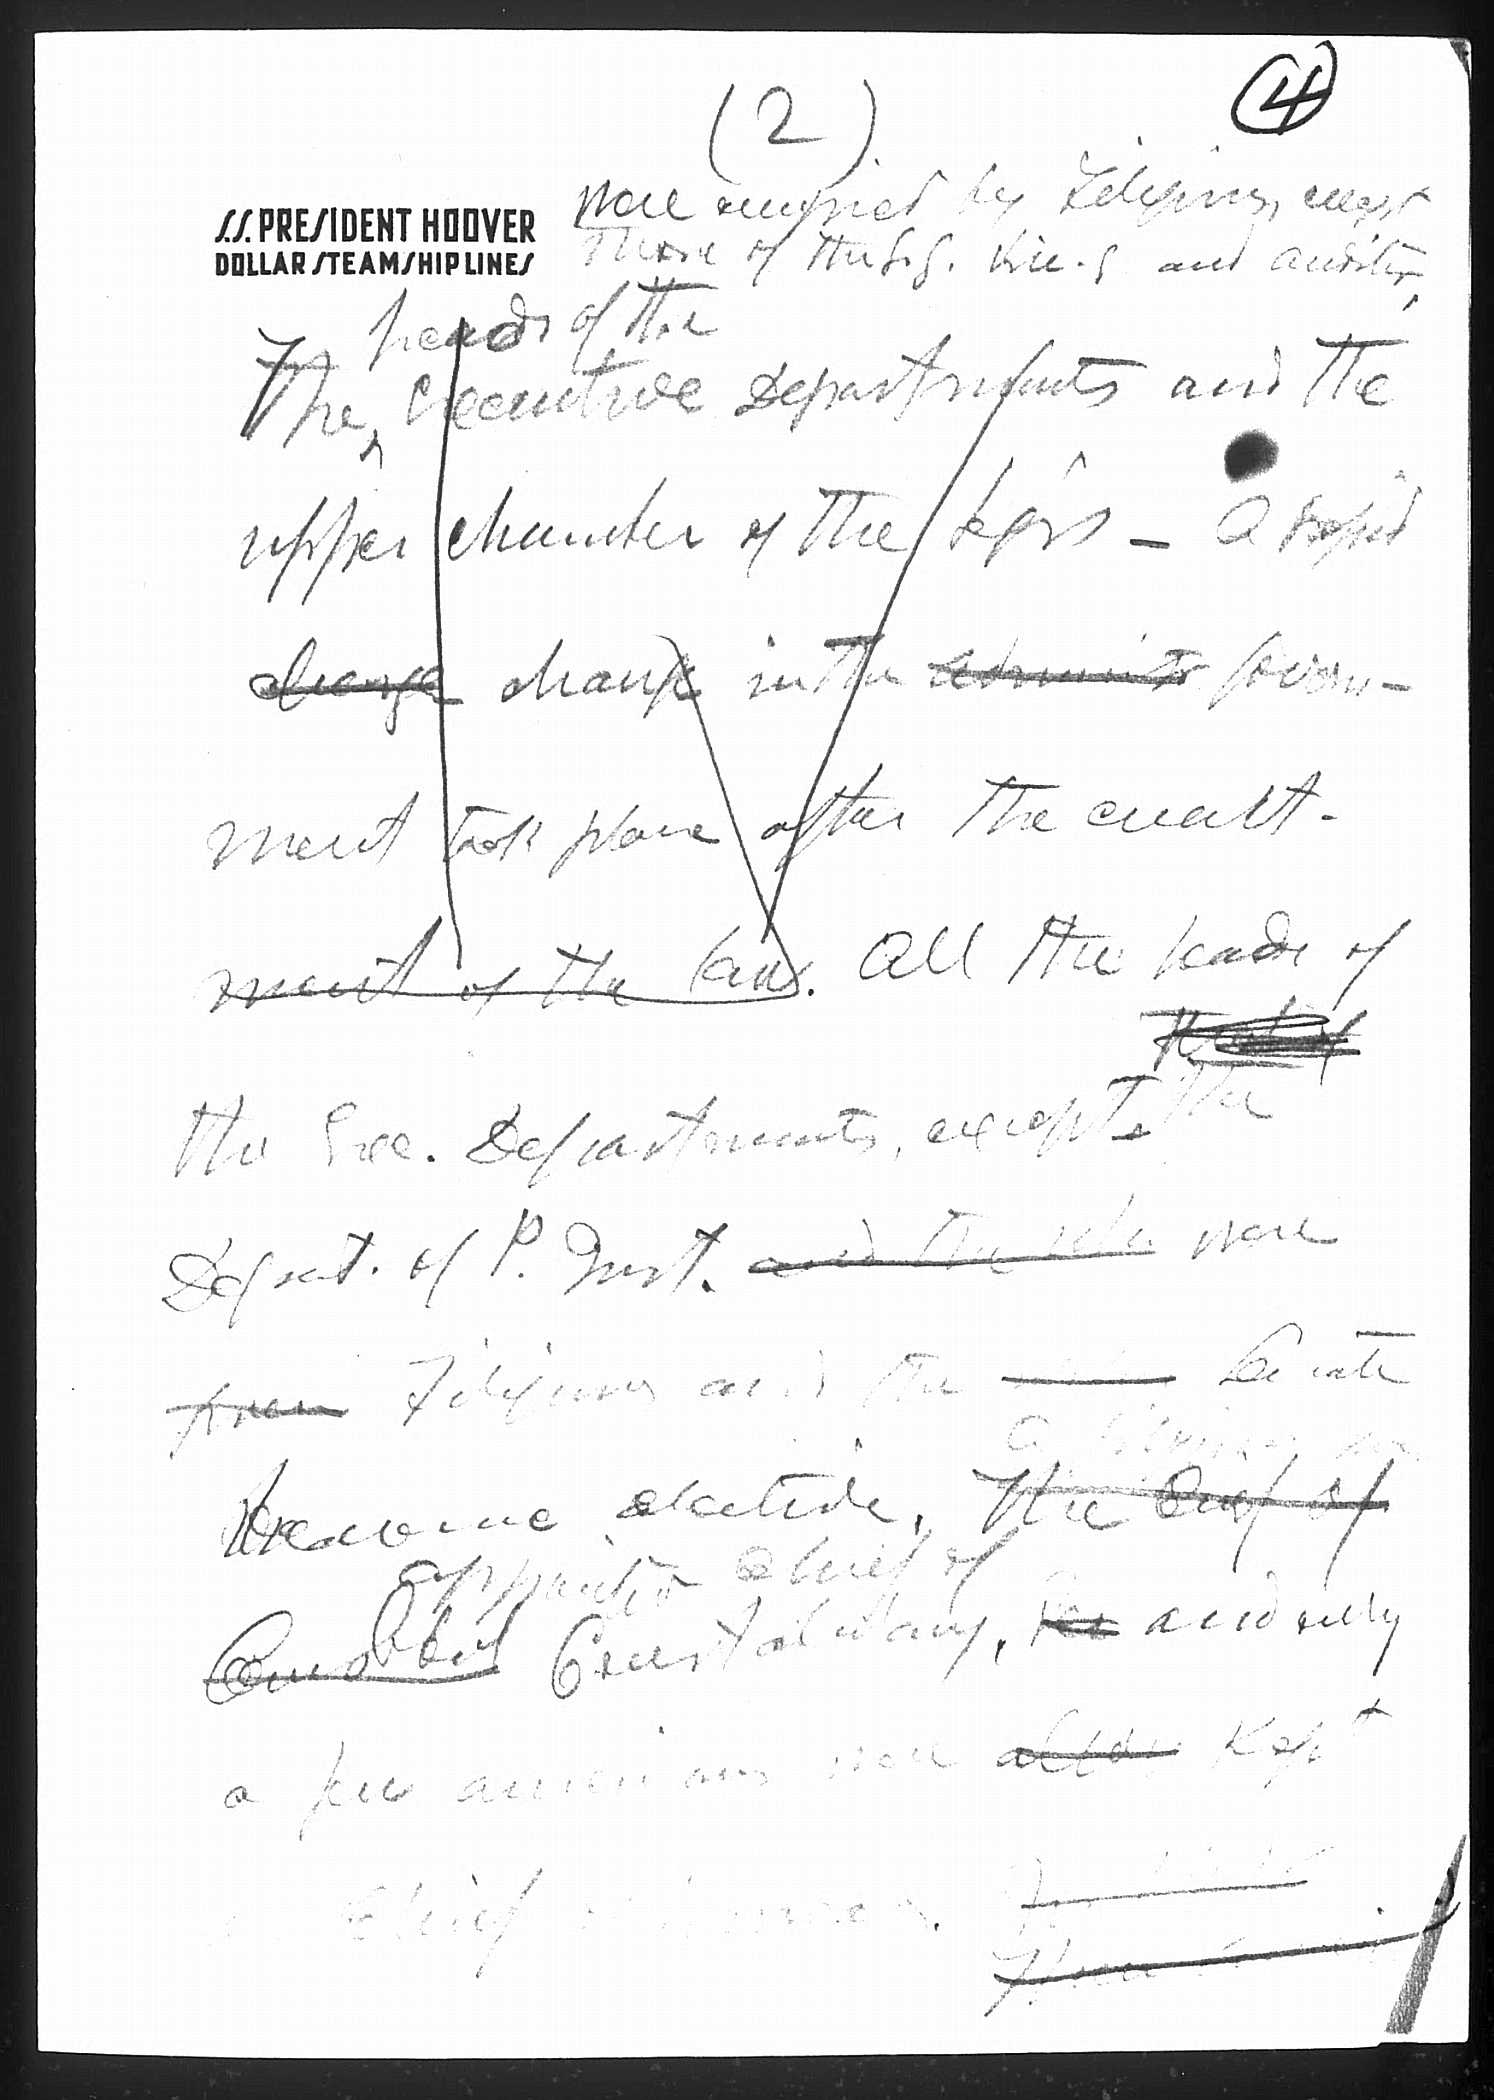 (2)
4
S.S. PRESIDENT HOOVER
DOLLAR STEAMSHIP LINES
were occupied by Filipinos, except
those of the G.G. Vice-G and auditor,
heads of the
The Executive Departments and the
upper chamber of the Legis - A rapid
change change in the Govern-
ment took place after the enact-
ment of the law. All the heads of
the Exec. Departments, except the
Depart. of P. Inst. and the were
from Filipinos and the Senate
a Filipino was
became elective. The Chief of
appointed Chief of
Constabulary, and only
a few Americans were kept
Chief